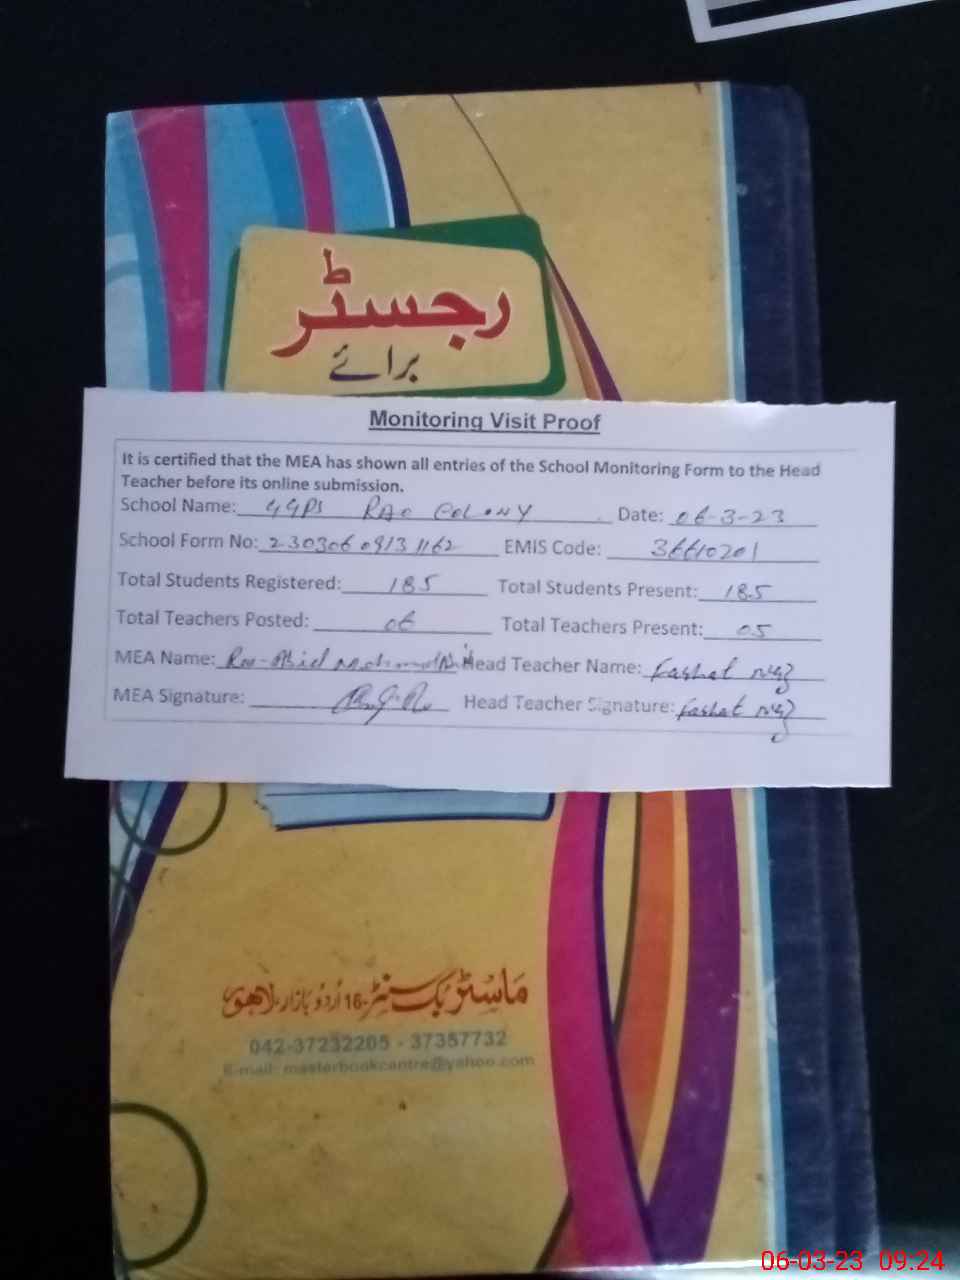 رجسٹر
برائے
Monitoring Visit Proof
It is certified that the MEA has shown all entries of the School Monitoring Form to the Head
Teacher before its online submission.
School Name: GGPS RAO COLONY Date: 06-3-23
School Form No: 230306 0913 1162 EMIS Code: 36610201
Total Students Registered: 185 Total Students Present: 185
Total Teachers Posted: 06 Total Teachers Present: 05
MEA Name: Rao Abid Head Teacher Name:
MEA Signature: Head Teacher Signature:
ماسٹر بک سنٹر -16 اُردُو بازار، لاہور
042-37232205 - 37357732
E-mail: masterbookcentre@yahoo.com
06-03-23 09:24